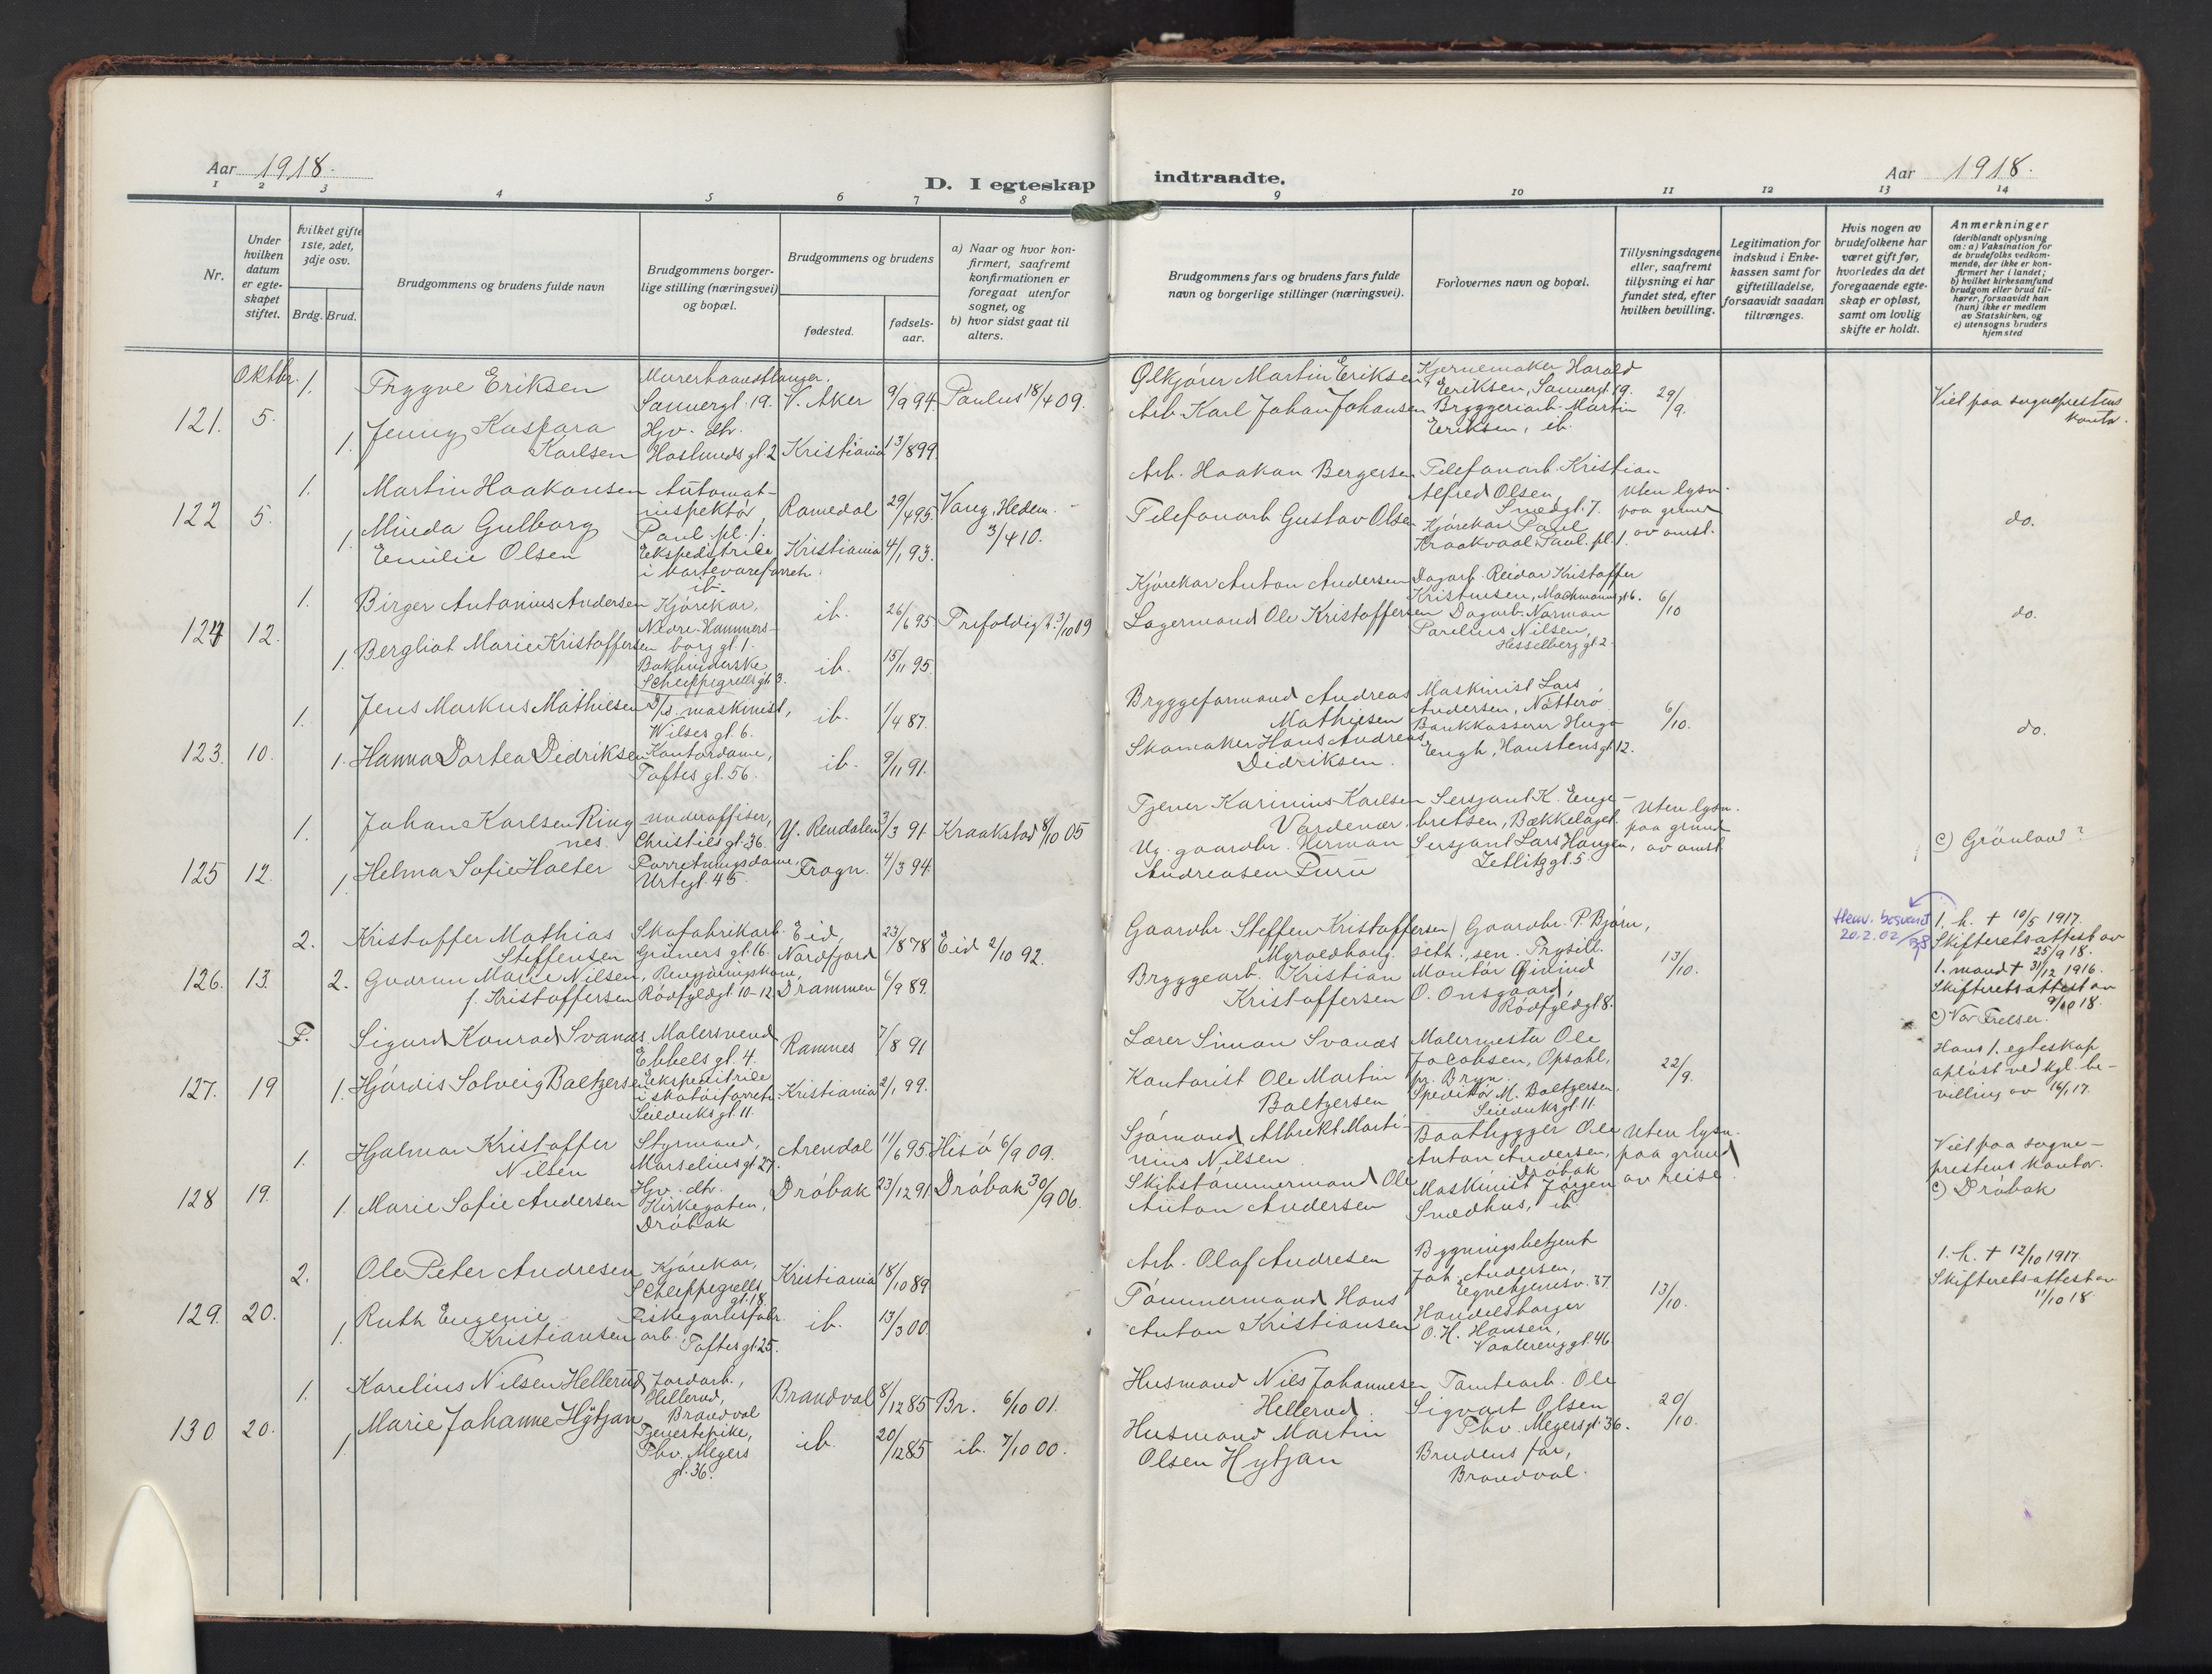 Aar 1918.
D. I egteskap indtraadte.
Aar 1918.
1 2 3 4 5 6 7 8 9 10 11 12 13 14
Nr.
Under hvilken datum er egte-skapet stiftet.
hvilket gifte 1ste, 2det, 3dje osv.
Brdg. Brud.
Brudgommens og brudens fulde navn
Brudgommens borger-lige stilling (næringsvei) og bopæl.
Brudgommens og brudens
fødested.
fødsels-aar.
a) Naar og hvor kon-firmert, saafremt konfirmationen er foregaat utenfor sognet, og
b) hvor sidst gaat til alters.
Brudgommens fars og brudens fars fulde navn og borgerlige stillinger (næringsvei).
Forlovernes navn og bopæl.
Tillysningsdagene eller, saafremt tillysning ei har fundet sted, efter hvilken bevilling.
Legitimation for indskud i Enke-kassen samt for giftetilladelse, forsaavidt saadan tiltrænges.
Hvis nogen av brudefolkene har været gift før, hvorledes da det foregaaende egte-skap er opløst, samt om lovlig skifte er holdt.
Anmerkninger (deriblandt oplysning om: a) Vaksination for de brudefolks vedkom-mende, der ikke er kon-firmert her i landet; b) hvilket kirkesamfund brudgom eller brud til-hører, forsaavidt han (hun) ikke er medlem av Statskirken, og c) utensogns bruders hjemsted
Oktbr.
121. 5. 1. Trygve Eriksen
Murerhaandtlanger. Sannergt. 19. V. Aker 9/9 94. Paulus 18/4 09.
1. Jenny Kaspara Karlsen
Hjv. dtr. Haslunds gt. 2 Kristiania 13/8 99.
Ølkjører Martin Eriksen
Arb. Karl Johan Johansen
Kjernemaker Harald Eriksen, Sannergt. 19.
Bryggeriarb. Martin Eriksen, ib.
29/9.
Viet paa sogneprestens kontor.
122 5. 1. Martin Haakonsen
Automat-inspektør Paul. pl. 1. Romedal 29/4 95. Vang, Hedem. 3/4 10.
1. Minda Gulborg Emilie Olsen
Ekspeditrice i kortevareforretn. ib. Kristiania 4/1 93.
Arb. Haakon Bergersen
Telefonarb. Gustav Olsen
Telefonarb. Kristian Alfred Olsen, Smedgt. 7.
Kjørekar Paul Kraakvaal, Paul. pl. 1.
Uten lysn. paa grund av omst.
do.
124 12. 1. Birger Antonius Andersen
Kjørekar, Nedre Hammers-borg gt. 1. ib. 26/6 95 Trefoldigh. 3/10 09
1. Bergliot Marie Kristoffersen
Bokbinderske Schleppegrells gt. 3. ib. 15/11 95.
Kjørekar Anton Andersen
Lagermand Ole Kristoffersen
Dagarb. Reidar Kristoffer Kristensen, Markmannsgt. 6.
Dagarb. Norman Parelius Nilsen, Hesselberg gt. 2.
6/10
do.
123. 10. 1. Jens Markus Mathiesen
D/s. maskinist, Wilses gt. 6. ib. 1/4 87.
1. Hanna Dortea Didriksen
Kontordame, Toftes gt. 56. ib. 9/11 91.
Bryggeformand Andreas Mathiesen
Skomaker Hans Andreas Didriksen.
Maskinist Lars Andersen, Nøtterø.
Bankkasserer Hugo Engh, Hanstensgt. 12.
6/10.
do.
125 12. 1. Johan Karlsen Ringnes.
underoffiser, Christies gt. 36. Y. Rendalen 3/3 91 Kraakstad 8/10 05
1. Helma Sofie Holter
Forretningsdame, Urtegt. 45. Frogn. 4/3 94.
Tjener Karinius Karlsen Vardenær.
Ug. gaardbr. Herman Andreasen Furu
Sersjant K. Enge-bretsen, Bækkelaget.
Sersjant Lars Haugen, Zetlitz gt. 5.
Uten lysn. paa grund av omst.
c) Grønland?
126. 13. 2. Kristoffer Mathias Steffensen
Skofabrikarb. Grüners gt. 16. Eid, Nordfjord 23/8 78 Eid 2/10 92.
2. Gudrun Marie Nilsen, f. Kristoffersen
Rengjøringskone, Rødfyldgt. 10-12 Drammen 6/9 89.
Gaardbr. Steffen Kristoffersen Myroldhaug.
Bryggearb. Kristian Kristoffersen
Gaardbr. P. Bjørn, sen. Trysil.
Montør O. Onsgaard, Rødfyldgt. 8.
13/10.
20.2.02
1. h. † 10/5 1917. Skifteretsattest av 25/9 18.
1. mand † 31/12 1916. Skifteretsattest av 9/10 18.
c) Vor Frelser.
127. 19 F. Sigurd Konrad Svanæs
Malersvend Ebbels gt. 4. Ramnes 7/8 91
1. Hjørdis Solveig Baltzersen
Ekspeditrice i skotøiforretn. Seilduks gt. 11. Kristiania 2/1 99.
Lærer Simon Svanæs
Kontorist Ole Martin Baltzersen
Malermester Ole Jacobsen, Opsahl, pr. Bryn.
Speditør M. Baltzersen, Seilduks gt. 11.
22/9.
Hans 1. egteskap opløst ved kgl. be-villing av 16/1 17.
128 19. 1. Hjalmar Kristoffer Nilsen
Styrmand, Marselius gt. 27. Arendal 11/6 95. Hisø 6/9 09.
1. Marie Sofie Andersen
Hjv. dtr. Kirkegaten, Drøbak Drøbak 23/12 91 Drøbak 30/9 06.
Sjømand Albrekt Marti-nius Nilsen
Skibstømmermand Ole Anton Andersen
Baatbygger Ole Anton Andersen, Drøbak
Maskinist Jørgen Smedhus, ib.
Uten lysn. paa grund av reise.
Viet paa sogne-prestens kontor.
c) Drøbak
129. 20. 2. Ole Peter Andresen
Kjørekar, Schleppegrells gt. 18 Kristiania 18/10 89
1. Ruth Eugenie Kristiansen
Fiskegarnsfabr. arb. Toftes gt. 25. ib. 13/3 00.
Arb. Olaf Andresen
Tømmermand Hans Anton Kristiansen
Bygningsbetjent Joh. Andersen, Egnehjemsv. 37.
Handelsborger O. H. Hansen, Vaalereng gt. 46.
13/10.
1. h. † 12/10 1917. Skifteretsattest av 11/10 18.
130 20. 1. Karelius Nilsen Hellerud
Jordarb., Hellerud, Brandval Brandval 8/12 85 Br. 6/10 01.
1. Marie Johanne Hytjan
Tjenestepike, Thv. Meyers gt. 36. ib. 20/12 85 ib. 7/10 00.
Husmand Nils Johannesen Hellerud.
Husmand Martin Olsen Hytjan
Tomtearb. Ole Sigvart Olsen Thv. Meyers gt. 36.
Brudens far, Brandval.
20/10.